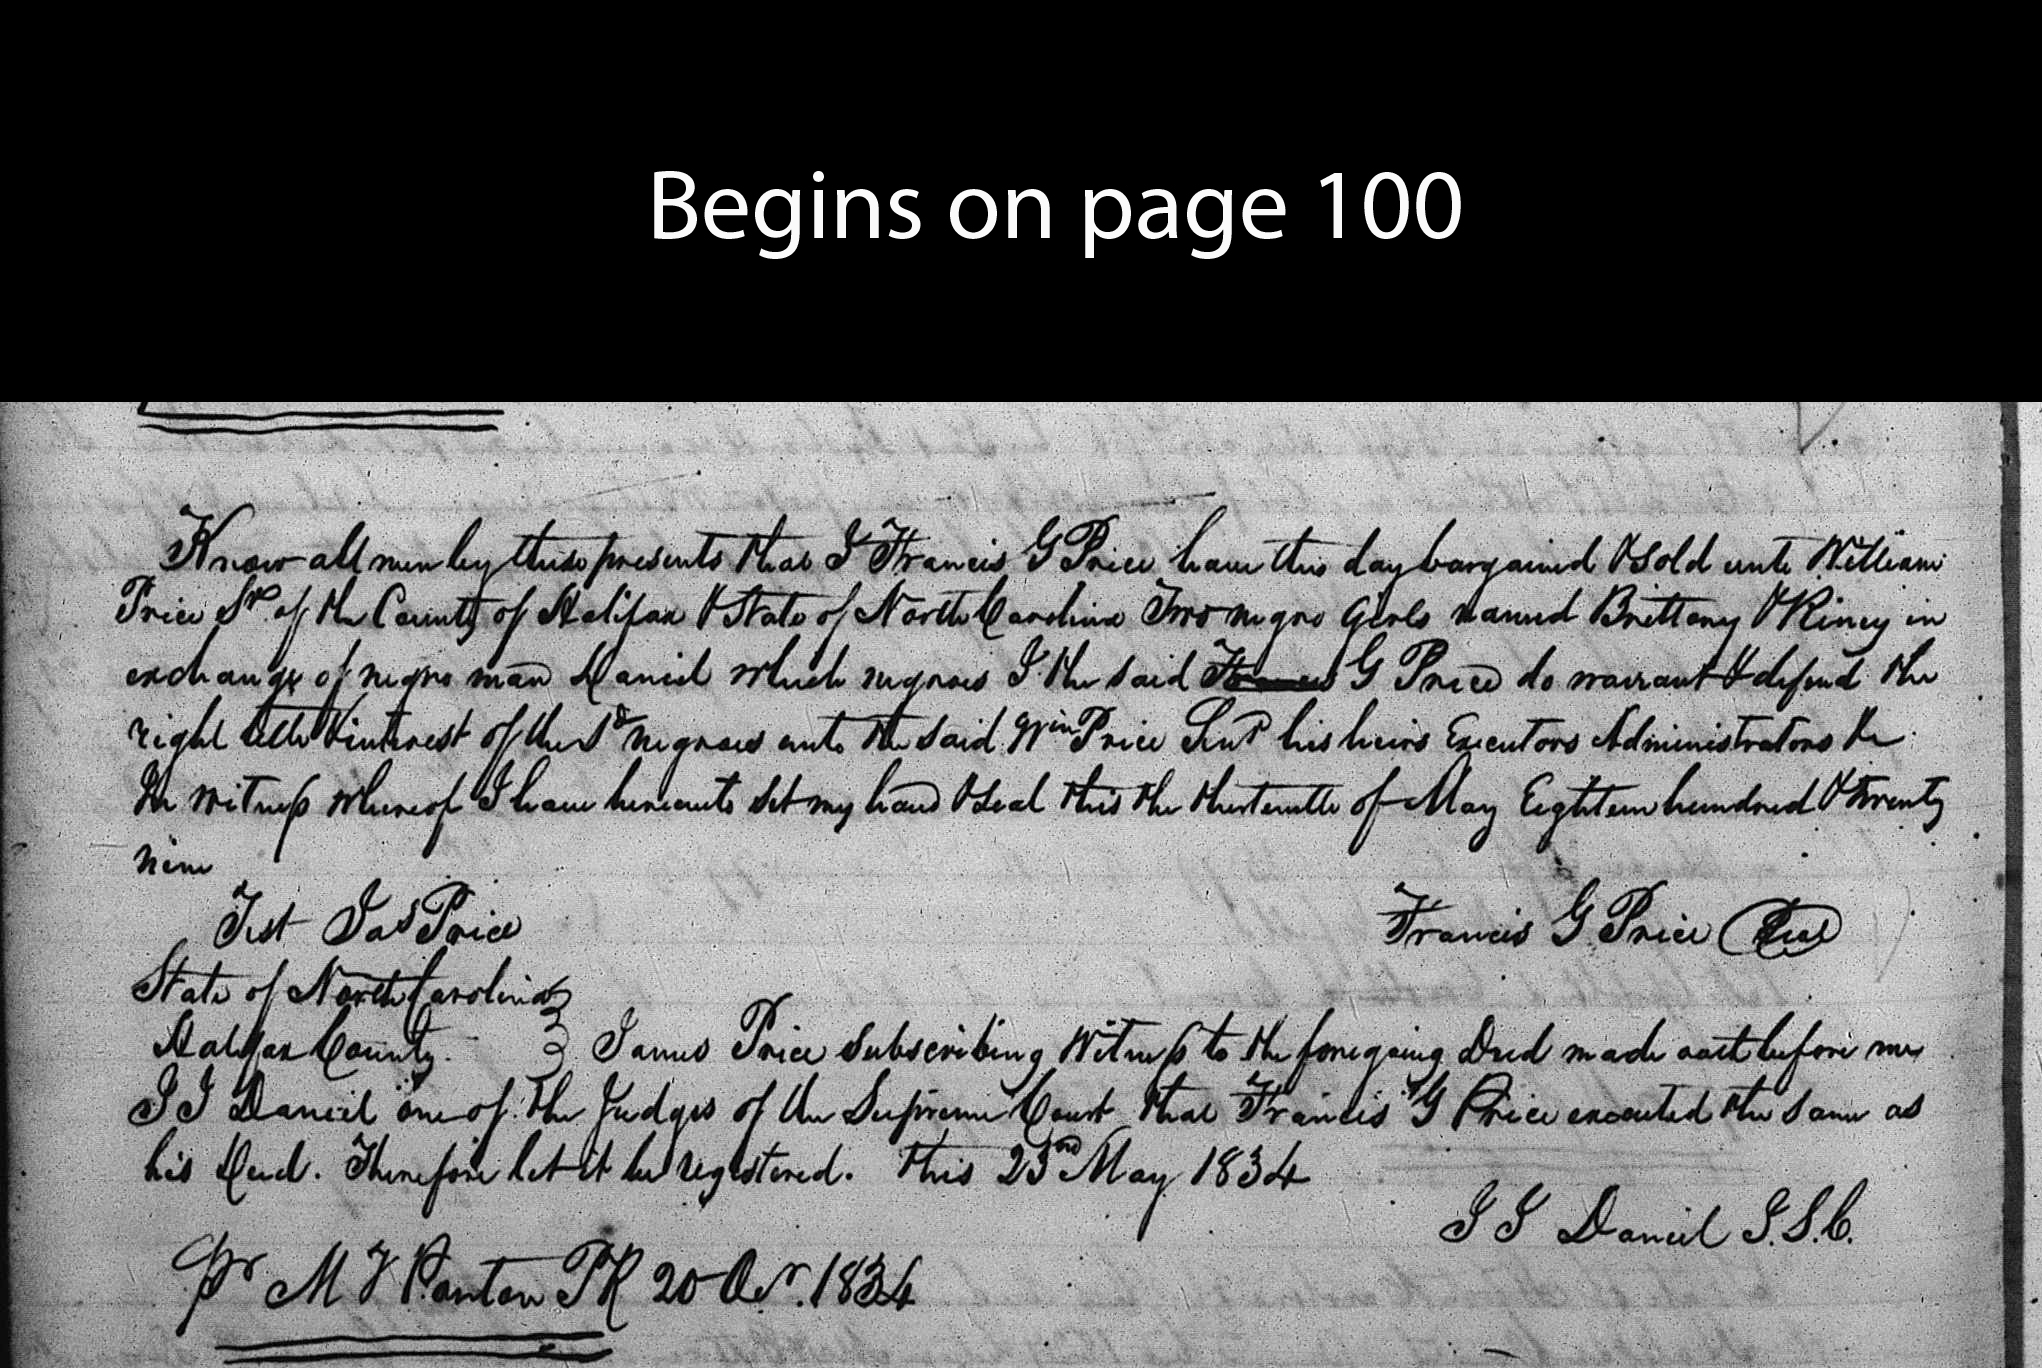 Begins on page 100
Know all men by these presents that I Francis G Price have this day bargained & sold unto William
Price Snr. of the County of Halifax & State of North Carolina Two negro Girls named Brittany & Riney in
exchange of negro man Daniel which negroes I the said Francis G Price do warrant & defend the
right title & interest of the Sd negroes unto the said Wm Price Senr his heirs Executors Administrators &c.
In witness whereof I have hereunto set my hand & seal this the thirteenth of May Eighteen hundred & twenty
nine
Test Jas Price
Francis G Price Seal
State of North Carolina
Halifax County. James Price subscribing Witness to the foregoing Deed made oath before me
J J Daniel one of the Judges of the Supreme Court that Francis G Price executed the same as
his Deed. Therefore let it be registered. This 23rd May 1834
J J Daniel J.S.C.
Pr M PR 20 1834